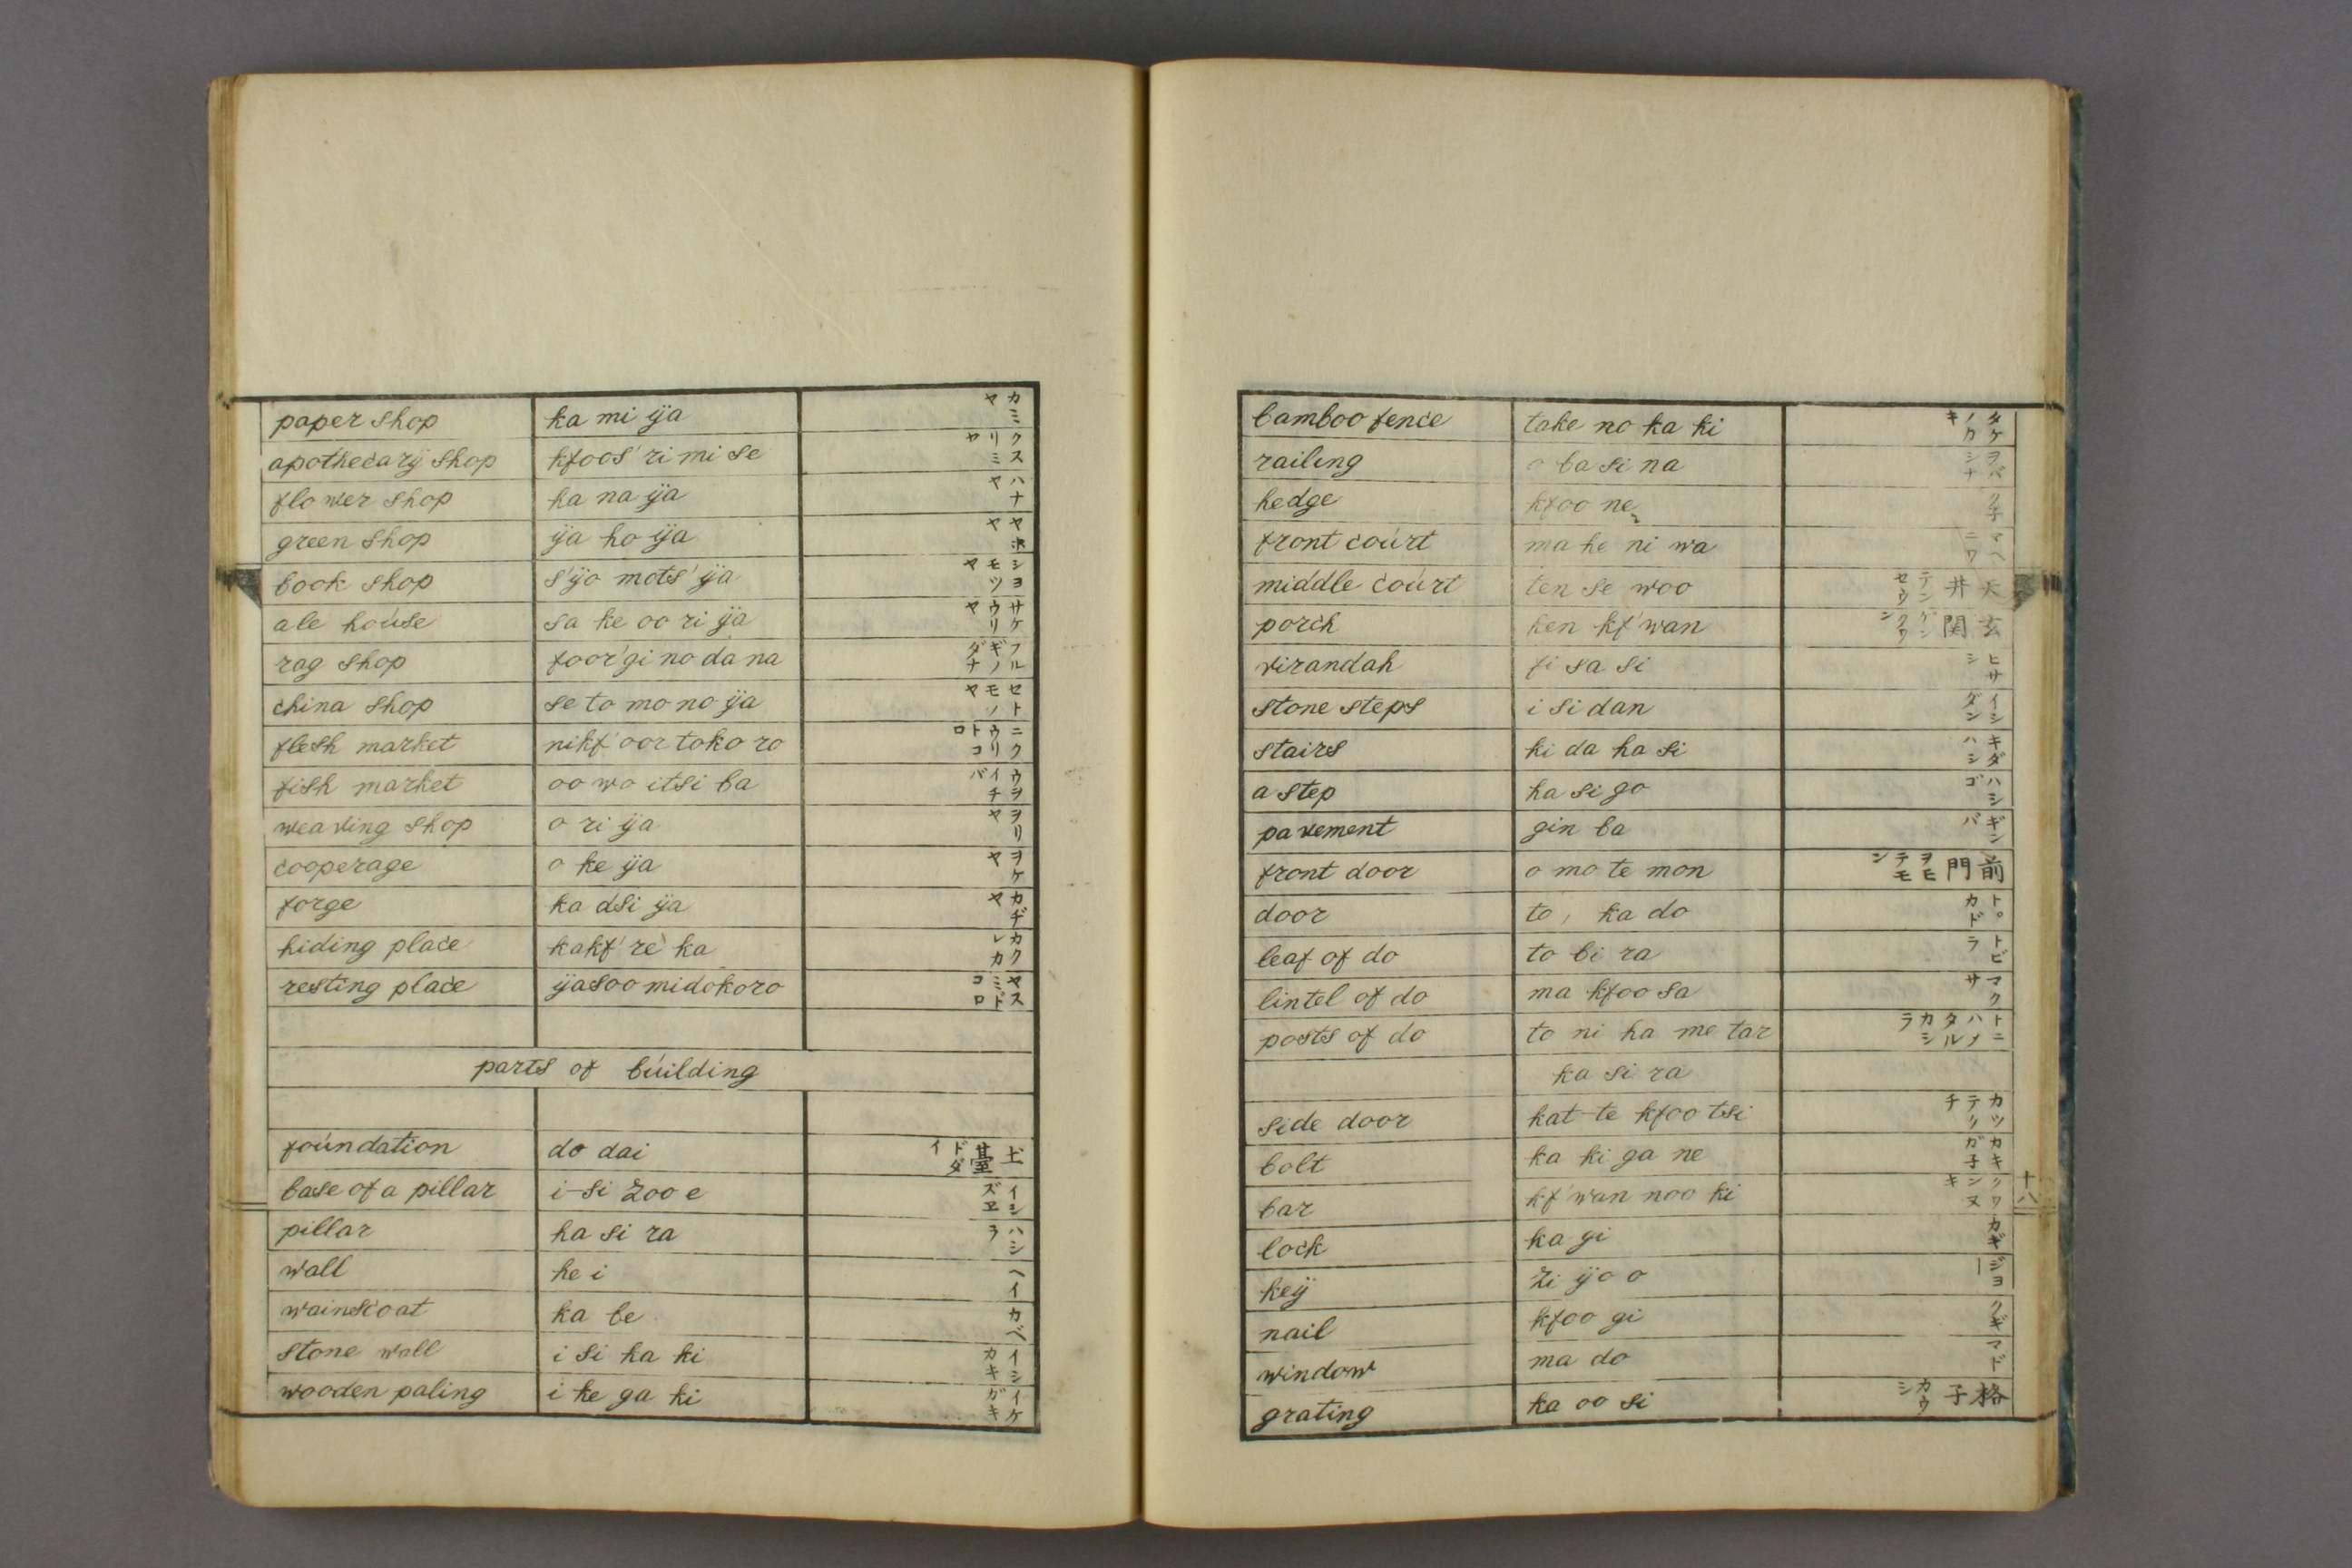 paper shop ka mi ÿa カミヤ
apothecarÿ shop kfoos' ri mi se クスリミヤ
flower shop ha na ÿa ハナヤ
green shop ÿa ho ÿa ヤホヤ
book shop s'ÿo mots' ÿa シヨモツヤ
ale house sa ke oo ri ÿa サケウリヤ
rag shop foor'gi no da na フルギノダナ
china shop se to mo no ÿa セトモノヤ
flesh market nikf'oor toko ro ニクウリトコロ
fish market oo wo itsi ba ウヲイチバ
weaving shop o ri ÿa ヲリヤ
cooperage o ke ÿa ヲケヤ
forge ka dsi ÿa カヂヤ
hiding place kakf're ka カクレカ
resting place ÿasoo midokoro ヤスミドコロ
parts of building
foundation do dai 土臺 ドダイ
base of a pillar i-si zoo e イシズヱ
pillar ha si ra ハシラ
wall he i ヘイ
wainscoat ka be カベ
stone wall i si ha ki イシカキ
wooden paling i ke ga ki イケガキ
bamboo fence take no ka ki タケノカキ
railing o ba si na ヲバシナ
hedge kfoo ne ク子
front court ma he ni wa マヘニワ
middle court ten se woo 天井 テンセウ
porch hen kf'wan 玄関 ゲンクワン
virandah fi sa si ヒサシ
stone steps i si dan イシダン
stairs ki da ha si キダハシ
a step ha si go ハシゴ
pavement gin ba ギンバ
front door o mo te mon 前門 ヲモテモン
door to, ka do ト。カド
leaf of do to bi ra トビラ
lintel of do ma kfoo sa マクサ
posts of do to ni ha me tar トニハメタルカシラ
ka si ra
side door kat-te kfoo tsi カツテクチ
bolt ka ki ga ne カキガ子
bar kf'wan noo ki クワンヌキ
lock ka gi カギ
keÿ zi ÿo o ジヨー
nail kfoo gi クギ
window ma do マド
grating ka oo si 格子 カウシ
十八